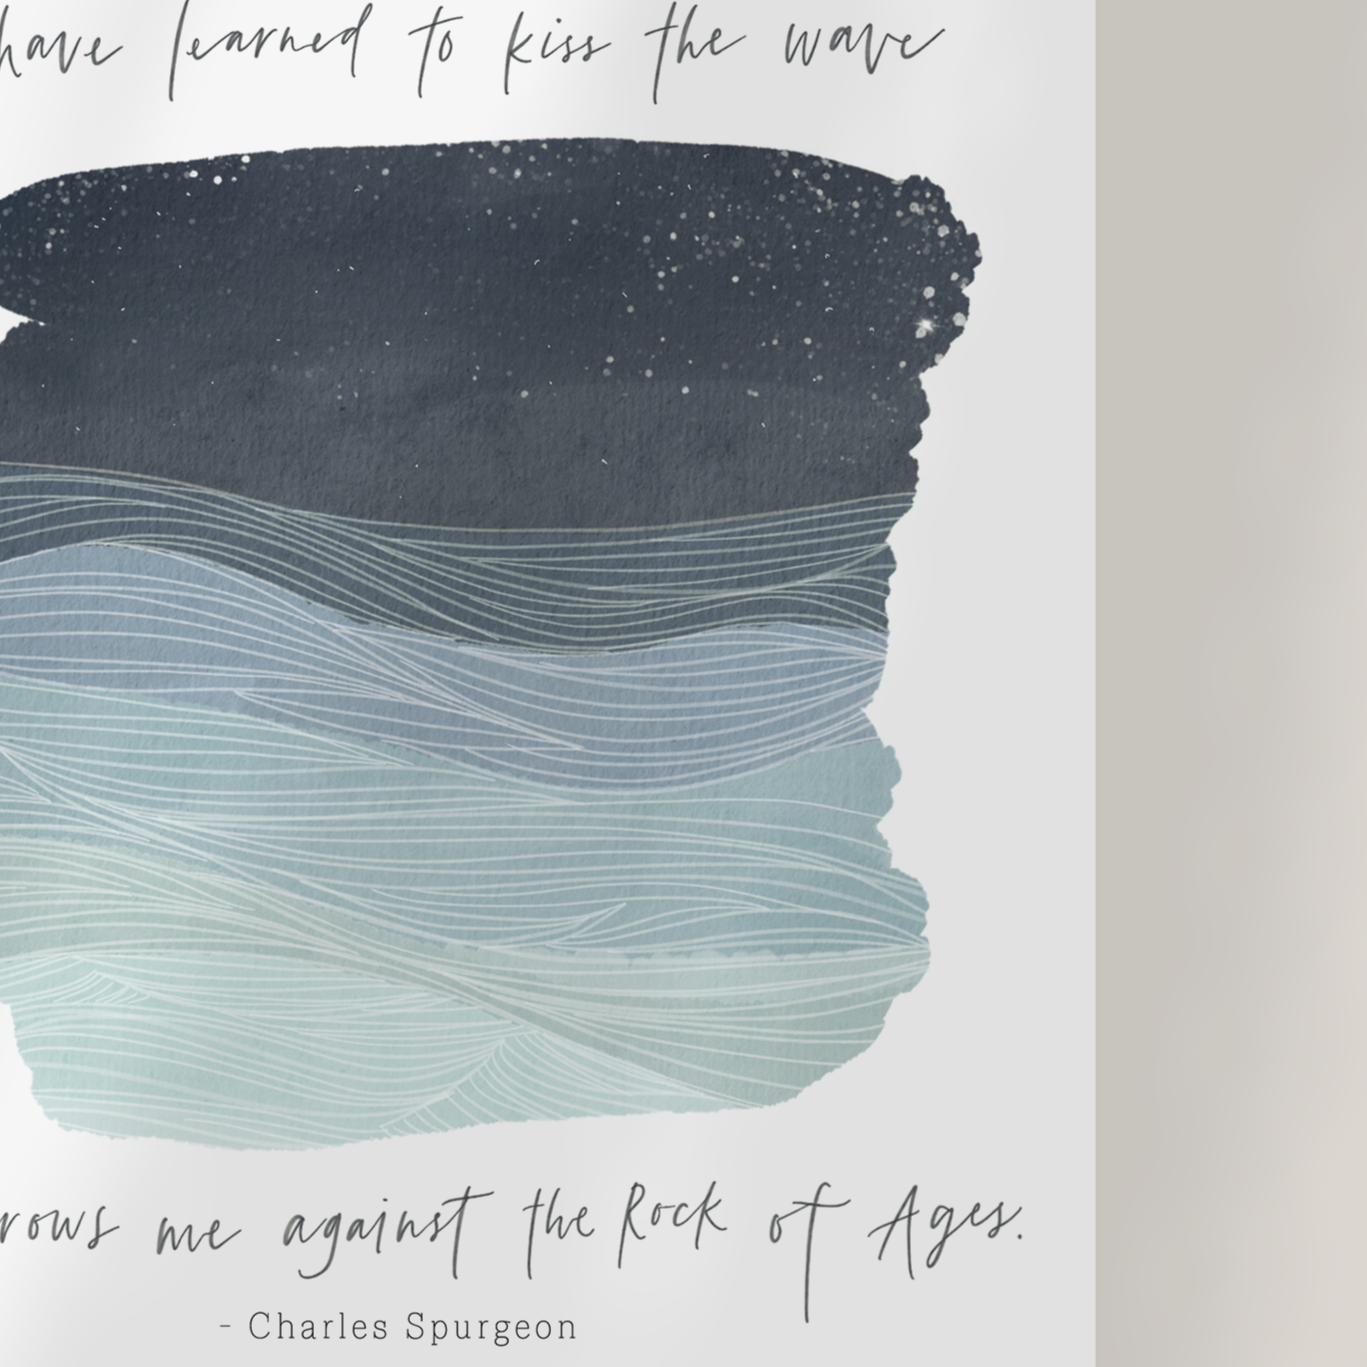 have learned to kiss the wave
rows me against the Rock of Ages.
- Charles Spurgeon